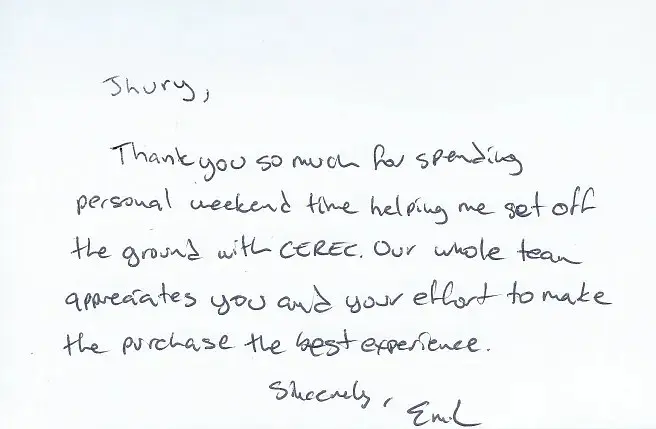 Jhury,
Thank you so much for spending
personal weekend time helping me get off
the ground with CEREC. Our whole team
appreciates you and your effort to make
the purchase the best experience.
Sincerely,